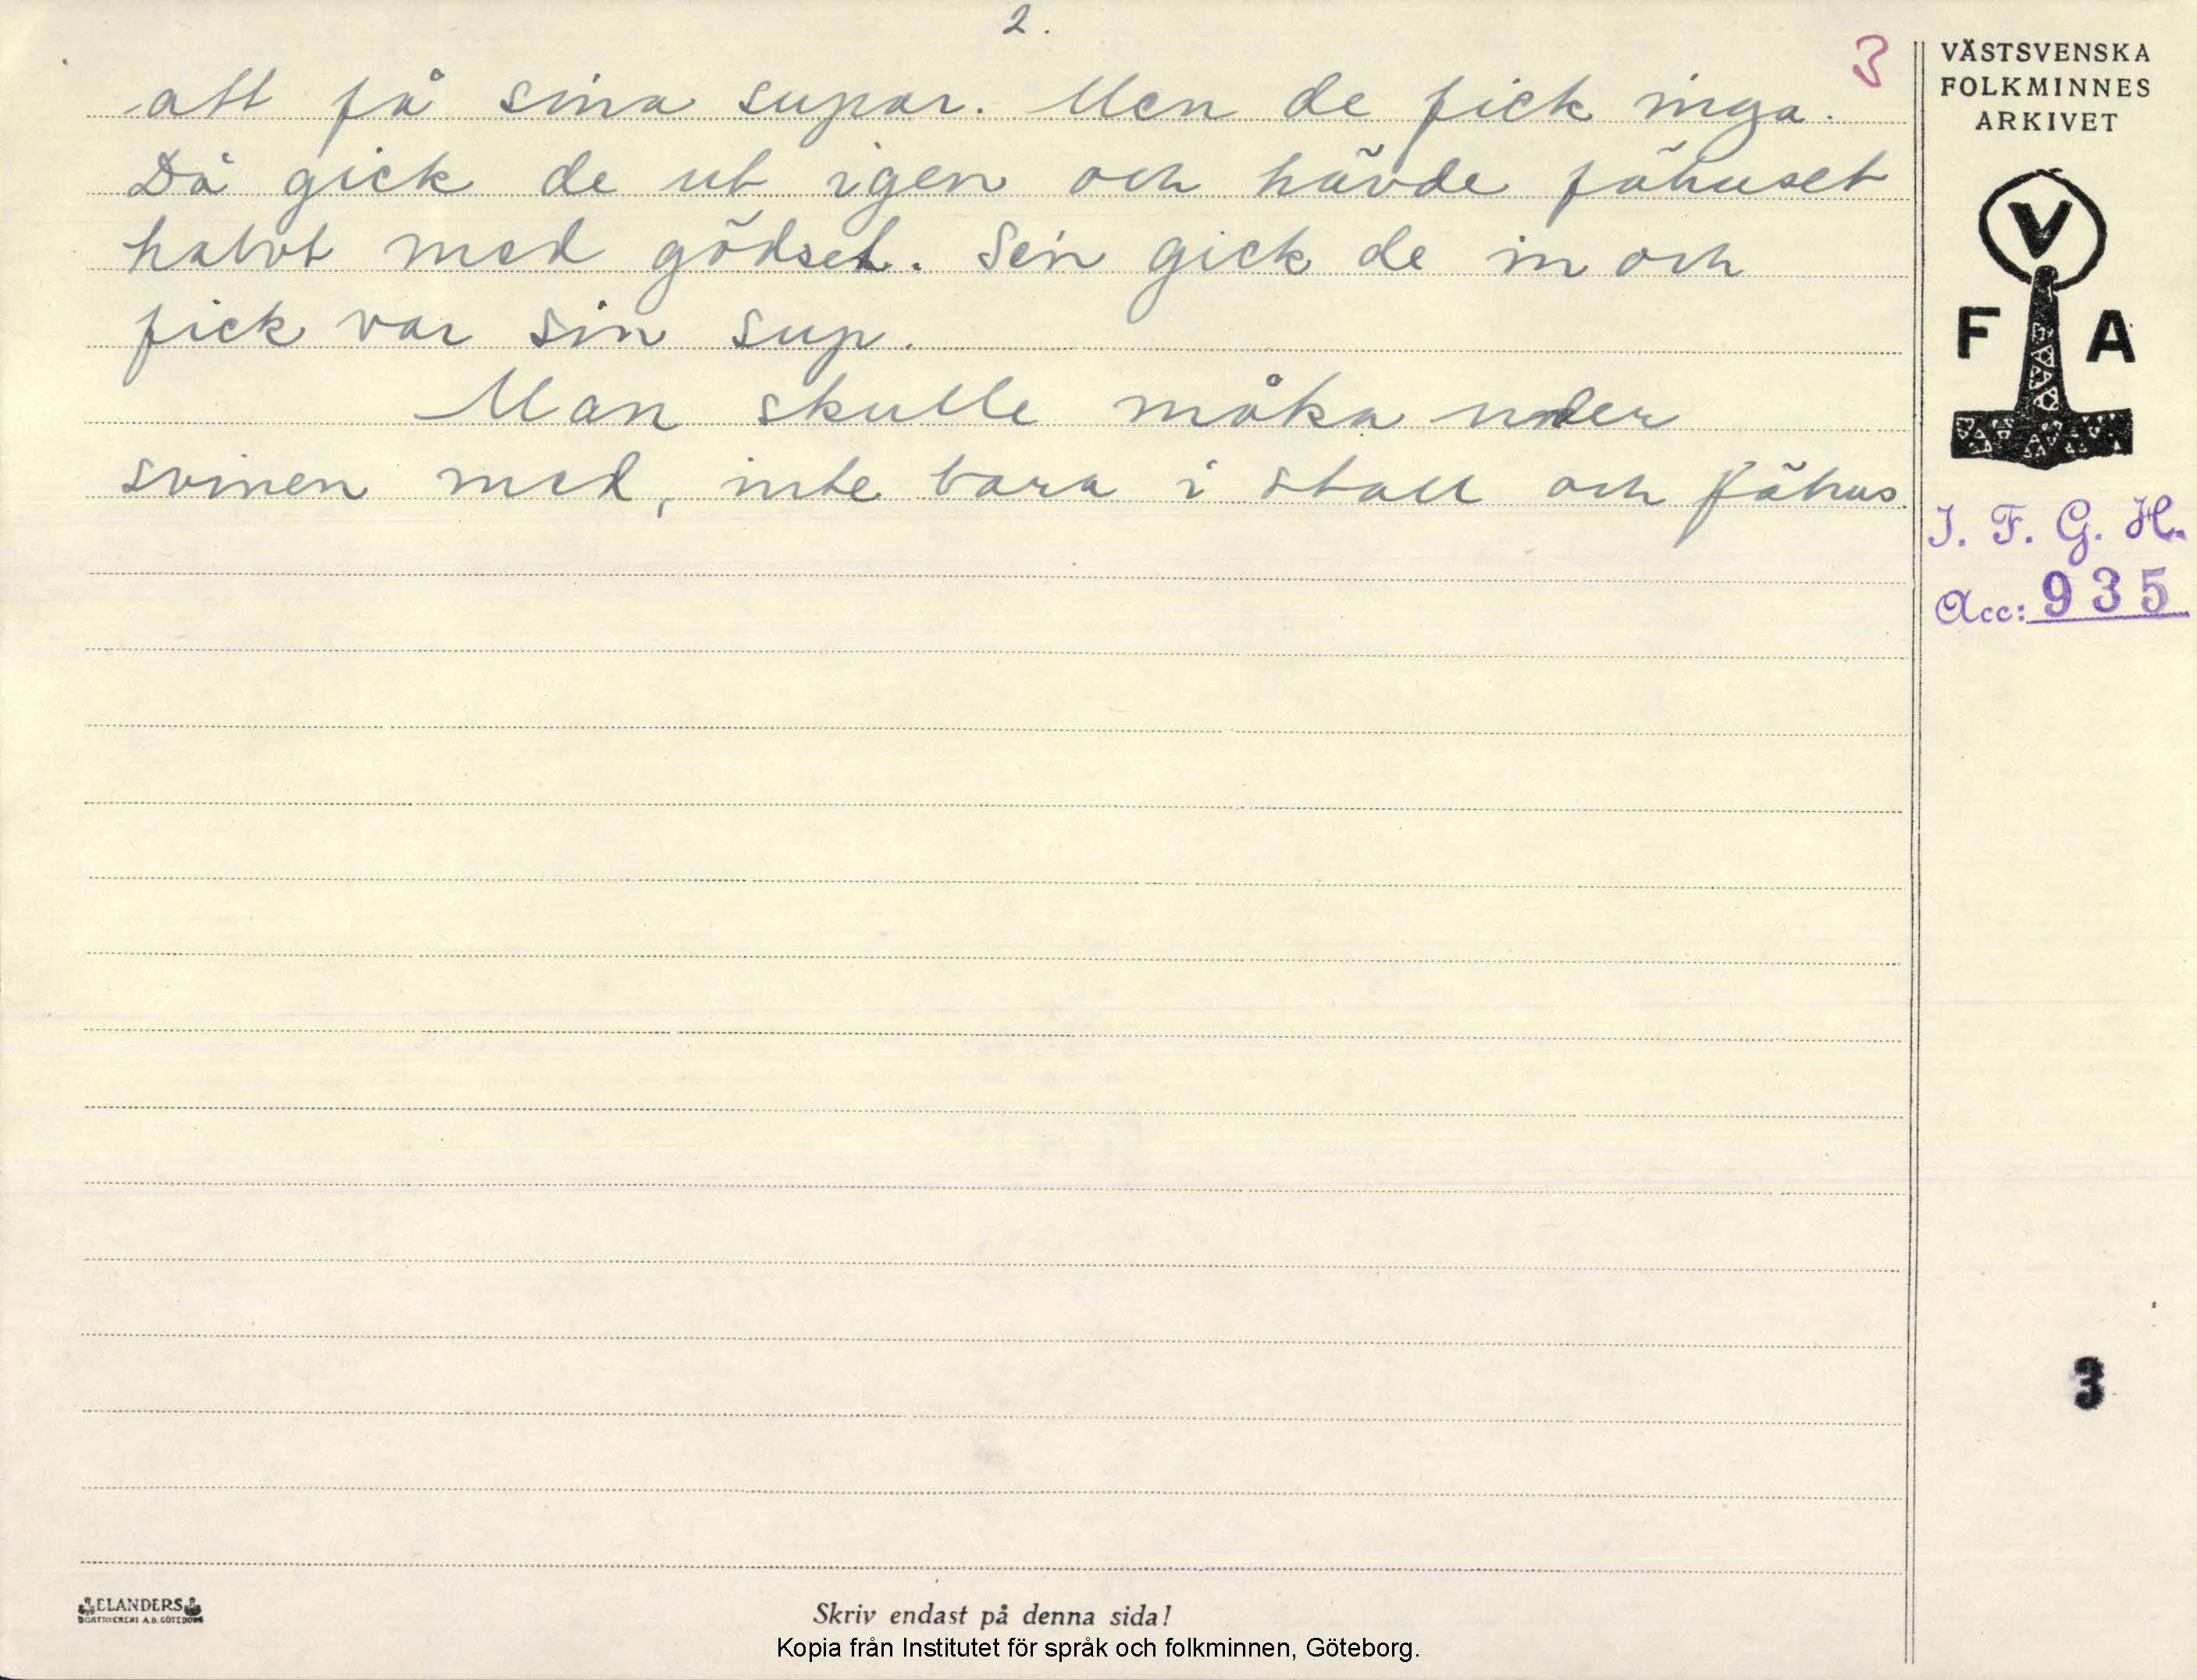 2.
3
att få sina supar. Men de fick inga.
Då gick de ut igen och hävde fähuset
halvt med gödsel. Sen gick de in och
fick var sin sup.
Man skulle måka under
svinen med, inte bara i stall och fähus.
VÄSTSVENSKA
FOLKMINNES
ARKIVET
V
F A
I. F. G. H.
Acc: 935
3
ELANDERS
BOKTRYCKERI A.B. GÖTEBORG
Skriv endast på denna sida!
Kopia från Institutet för språk och folkminnen, Göteborg.